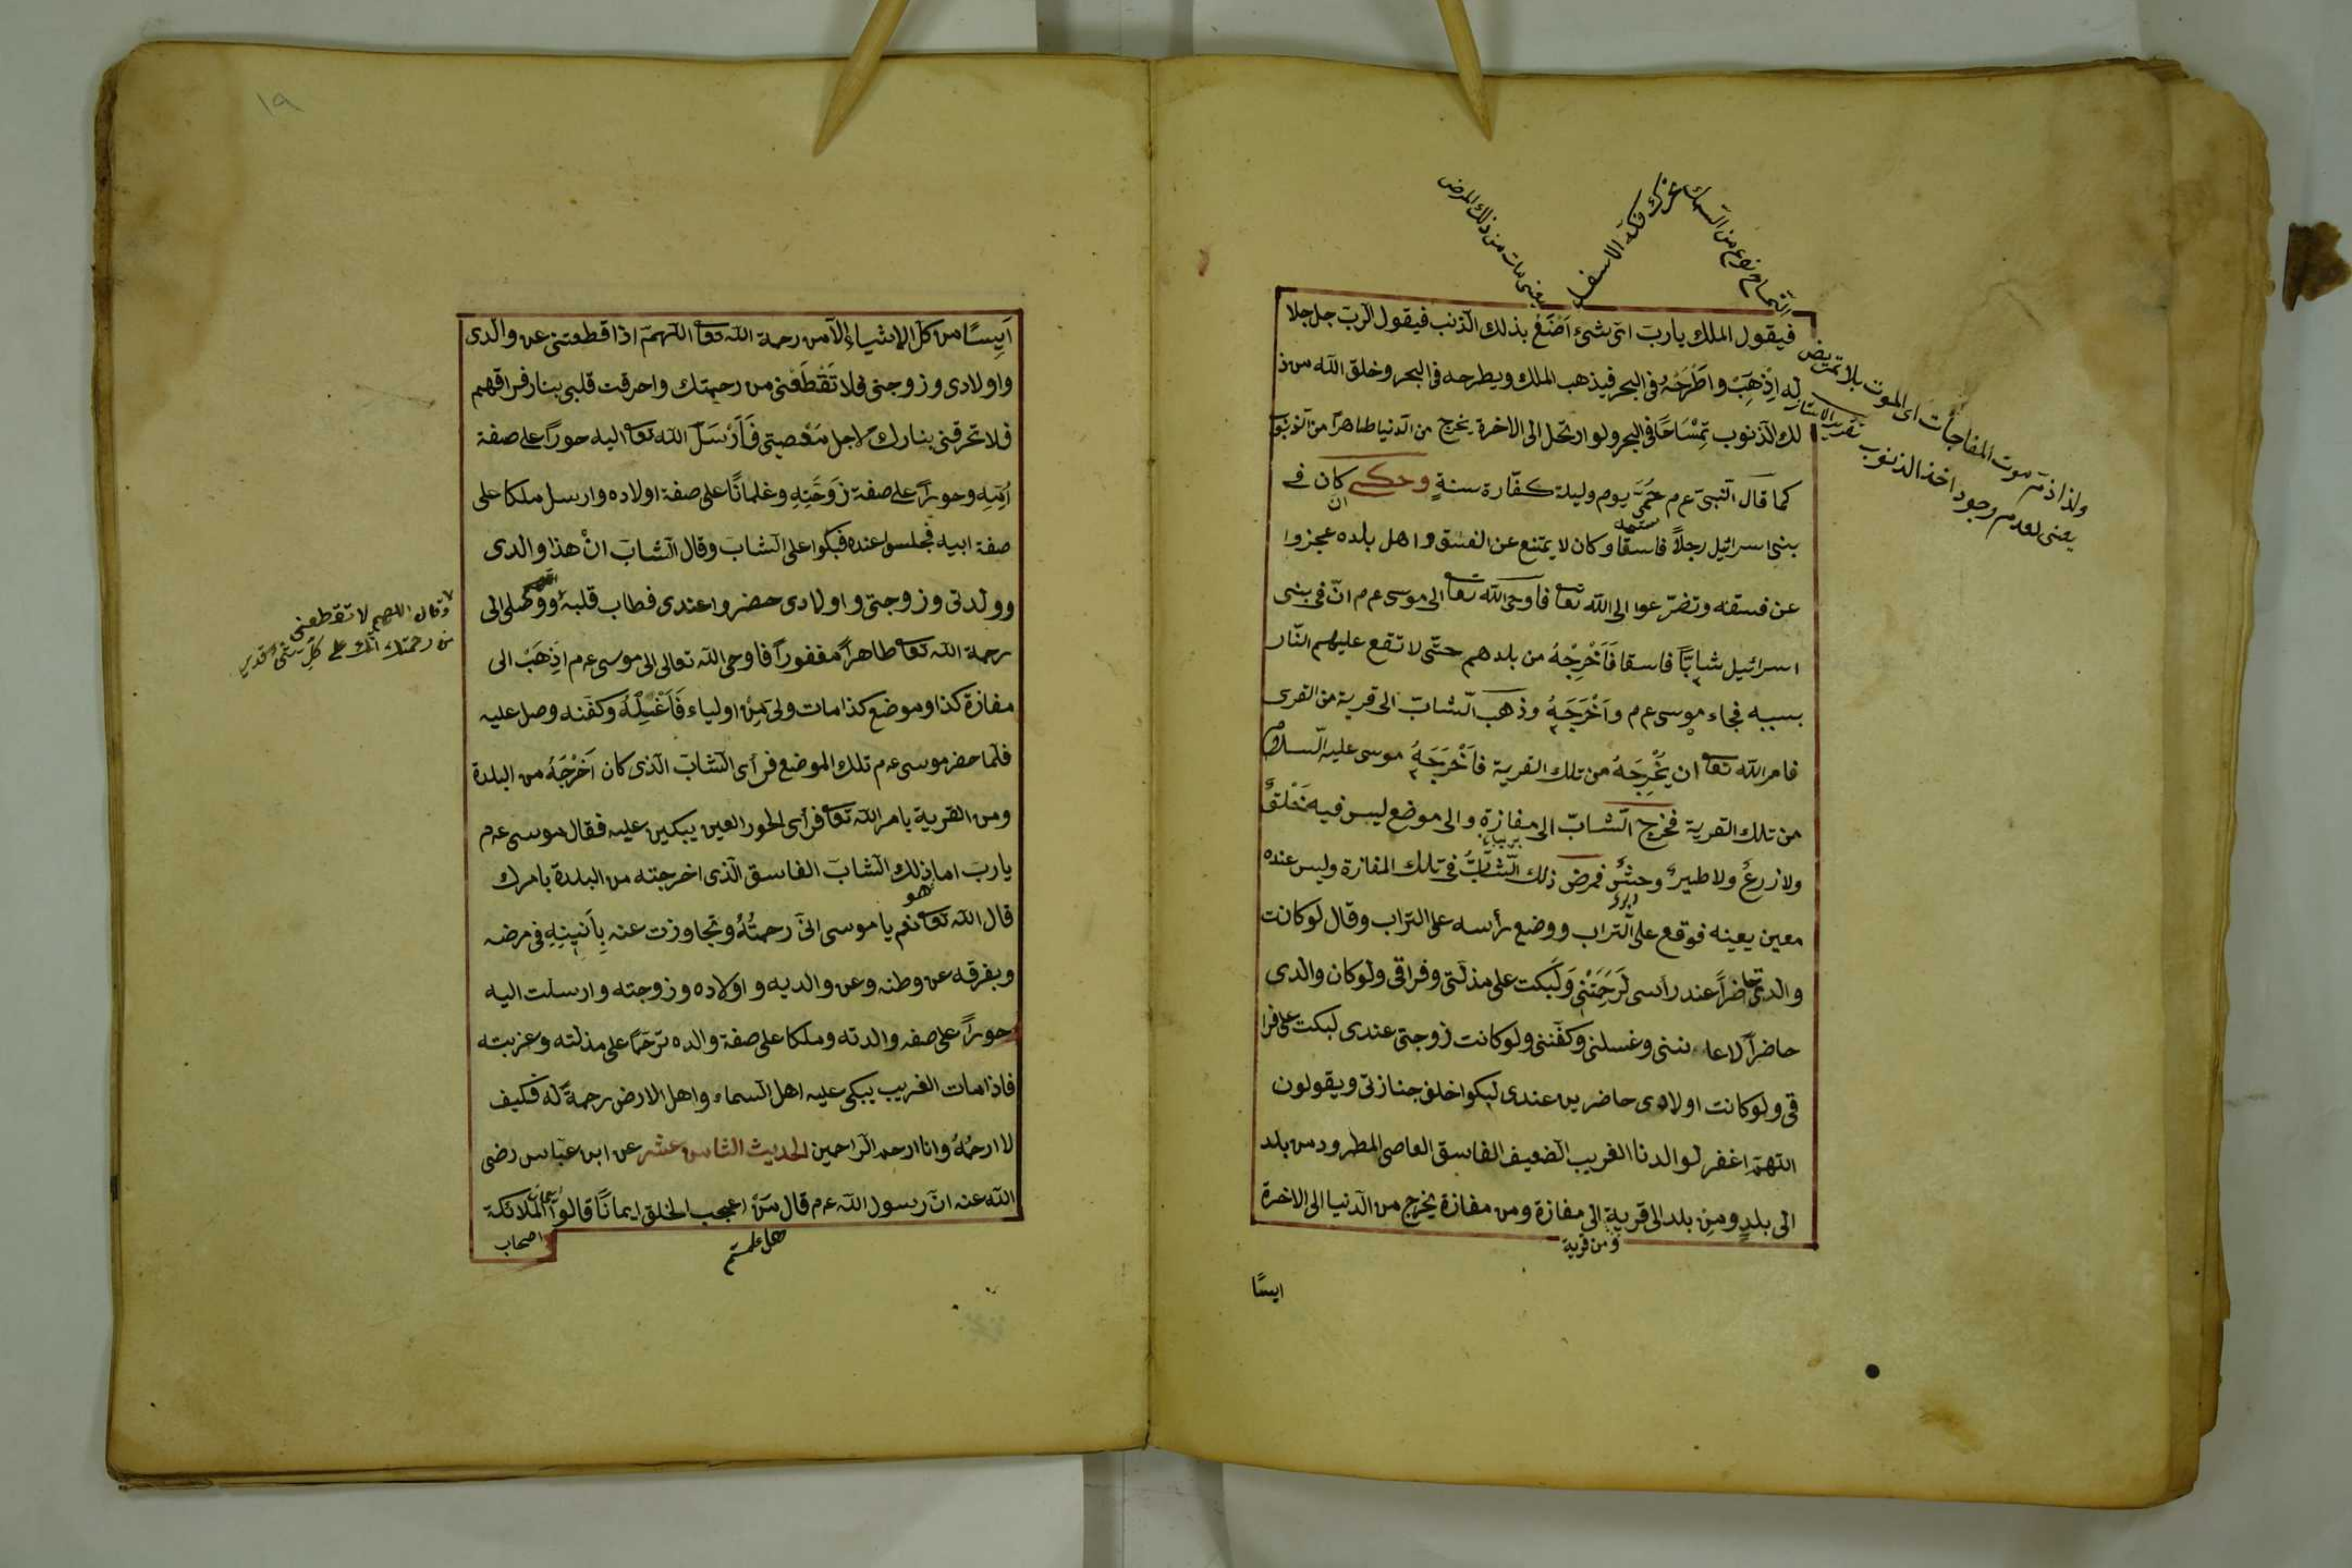 فيقول الملك يا رب اىّ شىء اَصْنَعُ بذلك الذنب فيقول الرب جل جلا
له اِذْهَبْ واطْرَحْهُ فى البحر فيذهب الملك ويطرحه فى البحر وخلق الله من ذ
لك الذنوب تِمْسَاحًا فى البحر ولو ارتحل الى الاخرة يخرج من الدنيا طاهرًا من الذنوب
كما قال النبى ع م حُمَّى يوم وليلة كفّارة سنةٍ وحكى ان كان فى
بنى اسرائيل رجلاً فاسقًا وكان لا يمتنع عن الفسق و اهل بلده عجزوا
عن فسقه وتضرّعوا الى الله تعا فاَوحى الله تعا الى موسى ع م انّ فى بنى
اسرائيل شابّاً فاسقا فَاَخْرِجْهُ من بلدهم حتّى لا تقع عليهم النّار
بسببه فجاء موسى ع م واَخْرَجَهُ وذهب الشابّ الى قرية من القرى
فامر الله تعا ان يُخْرِجَهُ من تلك القرية فاَخْرَجَهُ موسى عليه السلام
من تلك القرية فخرج الشابّ الى مفازةٍ والى موضع ليس فيه خَلْقٌ
ولا زرعٌ ولا طيرٌ وحشٌ فمرض ذلك الشابُّ فى تلك المفازة وليس عنده
معين يعينه فوقع على التراب ووضع رأسه على التراب وقال لو كانت
والدتى حاضراً عند رأسى لَرَحِمَتْنِى وَلَبكت على مذلّتى وفراقى ولو كان والدى
حاضراً لاعاننى وغسلنى وكفّننى ولو كانت زوجتى عندى لبكت على فرا
قى ولو كانت اولادى حاضرين عندى لبكوا خلف جنازتى ويقولون
اللّهمّ اغفر لوالدنا الغريب الضعيف الفاسق العاصى المطرود من بلد
الى بلدٍ ومِن بلد الى قرية ومن قرية الى مفازة ومن مفازة يخرج من الدنيا الى الاخرة
ايسًا
تمساح نوع من السمك
يعنى مات من ذلك المرض
ولذا ذمّ موت المفاجأت اى الموت بلا تمريض
يعنى لعدم وجود اخذ الذنوب
١٩
اَيِسًا من كلّ الاشياء اِلاّ من رحمة الله تعا اللّهمّ اذا قطعتنى عن والدى
واولادى وزوجتى فلا تَقْطَعْنى من رحمتك واحرقت قلبى بنار فراقهم
فلا تحرقنى بنارك لاجل مَعْصيتى فَاَرْسَلَ الله تعا اليه حوراً على صفة
اُمِّهِ وحوراً على صفة زَوْجَتِهِ وغلمانًا على صفة اولاده وارسل ملكا على
صفة ابيه فجلسوا عنده فبكوا على الشابّ وقال الشابّ انْ هذا والدى
ووالدتى وزوجتى و اولادى حضروا عندى فطاب قلبهُ ووصلى الى
رحمة الله تعا طاهراً مغفوراً فاوحى الله تعالى الى موسى ع م اذْهَبْ الى
مفازة كذا وموضع كذا مات ولىّ مِنْ اولياء فَاَغْسِلْهُ وكفّنه وصل عليه
فلمّا حضر موسى ع م تلك الموضع فرأى الشابّ الذى كان اَخْرَجَهُ من البلدة
ومن القرية بامر الله تعا فرأى الحور العين يبكين عليه فقال موسى ع م
يا ربّ اما ذلك الشابّ الفاسق الذى اخرجته من البلدة بامرك
قال الله تعا نعم هو يا موسى انّى رحمتُهُ وتجاوزت عنه بِاَنينِهِ فى مرضه
وبفرقه عن وطنه وعن والديه و اولاده وزوجته وارسلت اليه
حوراً على صفه والدته وملكا على صفة والده ترحّمًا على مذلته وغربته
فاذا مات الغريب يبكى عليه اهل السماء واهل الارض رحمةً له فكيف
لا ارحمُهُ وانا ارحم الراحمين الحديث الثامن عشر عن ابن عبّاس رضى
الله عنه انّ رسول الله ع م قال مَنْ اعجب الخلق ايمانًا قالوا ايمان الملائكة
هل علمتم
اصحاب
وقال اللهم لا تقطعنى
من رحمتك انّك على كلّ شئ قدير